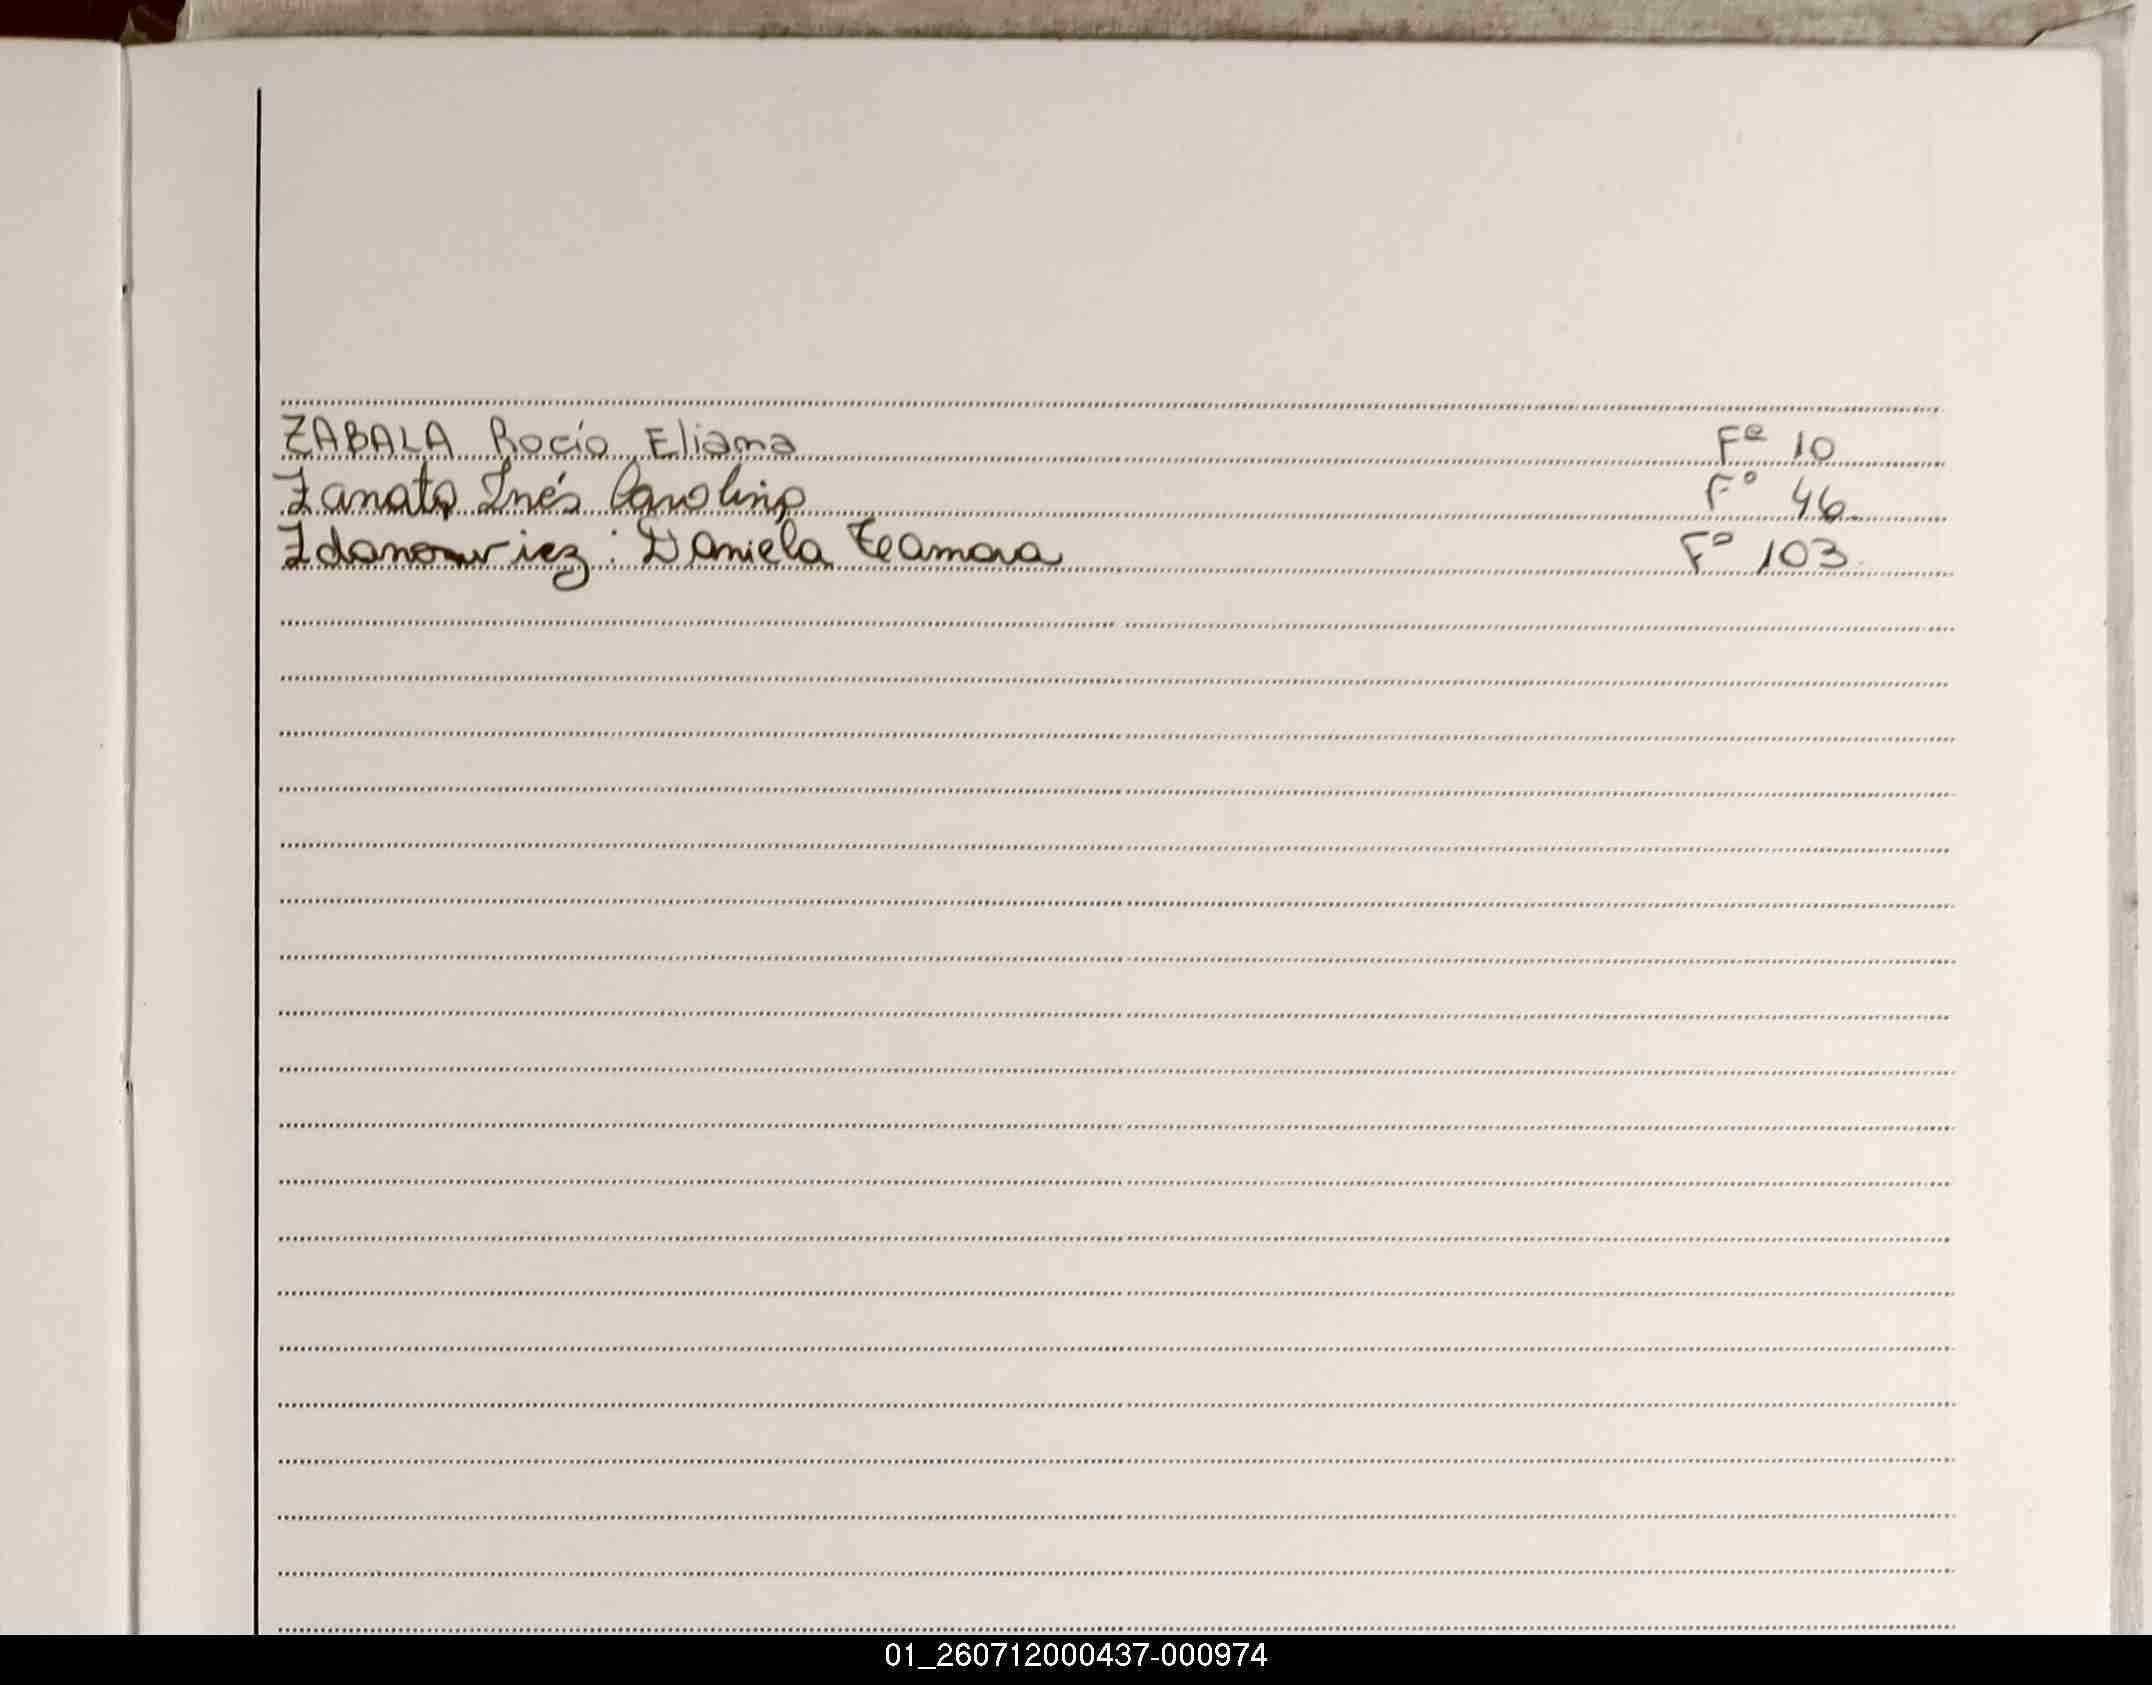 ZABALA Rocío Eliana Fº 10
Zanato Inés Carolina Fº 46
Zdanowiez: Daniela Fº 103
01_260712000437-000974